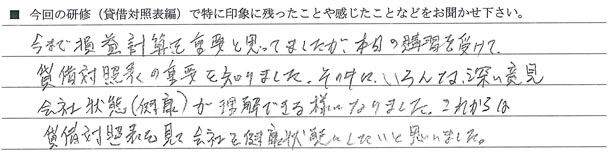 ■ 今回の研修（貸借対照表編）で特に印象に残ったことや感じたことなどをお聞かせ下さい。
今まで損益計算を重要と思ってましたが、本日の講習を受けて、
貸借対照表の重要を知りました。その中に、いろんな、深い意見
会社状態(健康)が理解できる様になりました。これからは
貸借対照表を見て会社を健康状態にしたいと思いました。